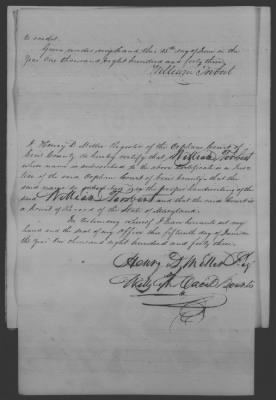 to said
Given under my hand this 15th day of June in the
Year One thousand eight hundred and forty three
William Torbert
I Henry D. Miller Register of the Orphans Court of
Cecil County do hereby certify that William Torbert
whose name is subscribed to the above certificate is a Jus-
tice of the said Orphans Court of Cecil County that the
said name is the proper handwriting of the
said William Torbert and that the said Court is
a Court of Record of the State of Maryland.
In testimony whereof I have hereunto set my
hand and the seal of my Office this fifteenth day of June in
the Year One thousand eight hundred and forty three.
Henry D Miller Reg
Wills for Cecil County